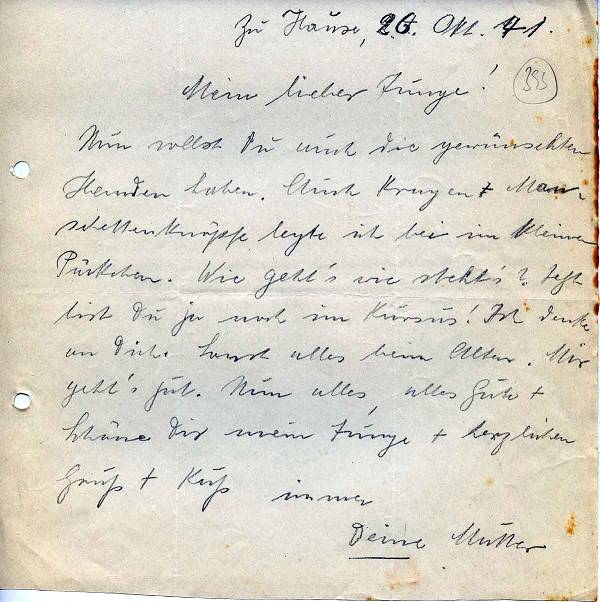 Zu Hause, 26. Okt. 41.
395
Mein lieber Junge!
Nun sollst Du auch die gewünschten
Hemden haben. Auch Kragen + Man-
schettenknöpfe legte ich bei im kleinen
Päckchen. Wie geht's wie steht's? Jetzt
bist Du ja noch im Kursus! Ich denke
an Dich. Sonst alles beim Alten. Mir
geht's gut. Nun alles, alles Gute +
Schöne Dir mein Junge + herzlichen
Gruß + Kuß immer
Deine Mutter